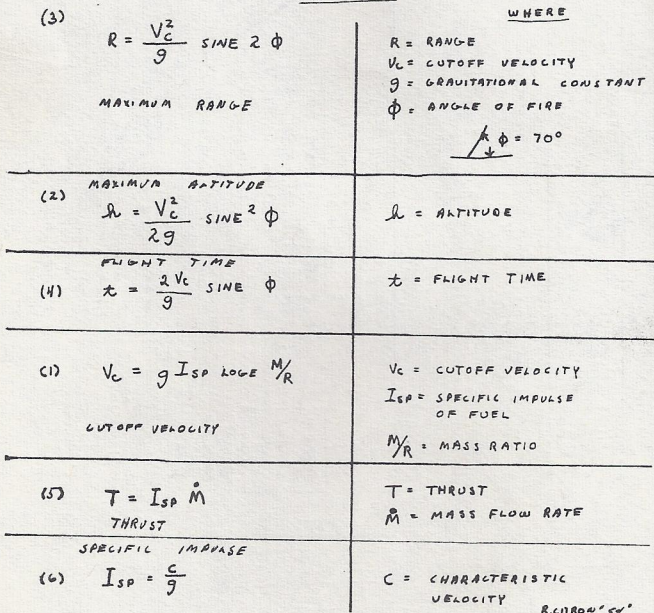 WHERE
(3) R = Vc²/g SINE 2 ϕ
MAXIMUM RANGE
R = RANGE
Vc = CUTOFF VELOCITY
g = GRAVITATIONAL CONSTANT
ϕ = ANGLE OF FIRE
ϕ = 70°
MAXIMUM ALTITUDE
(2) h = Vc²/2g SINE² ϕ
h = ALTITUDE
FLIGHT TIME
(4) t = 2Vc/g SINE ϕ
t = FLIGHT TIME
(1) Vc = g ISP LOGE M/R
CUTOFF VELOCITY
Vc = CUTOFF VELOCITY
ISP = SPECIFIC IMPULSE
OF FUEL
M/R = MASS RATIO
(5) T = ISP Ṁ
THRUST
T = THRUST
Ṁ = MASS FLOW RATE
SPECIFIC IMPULSE
(6) ISP = c/g
C = CHARACTERISTIC
VELOCITY